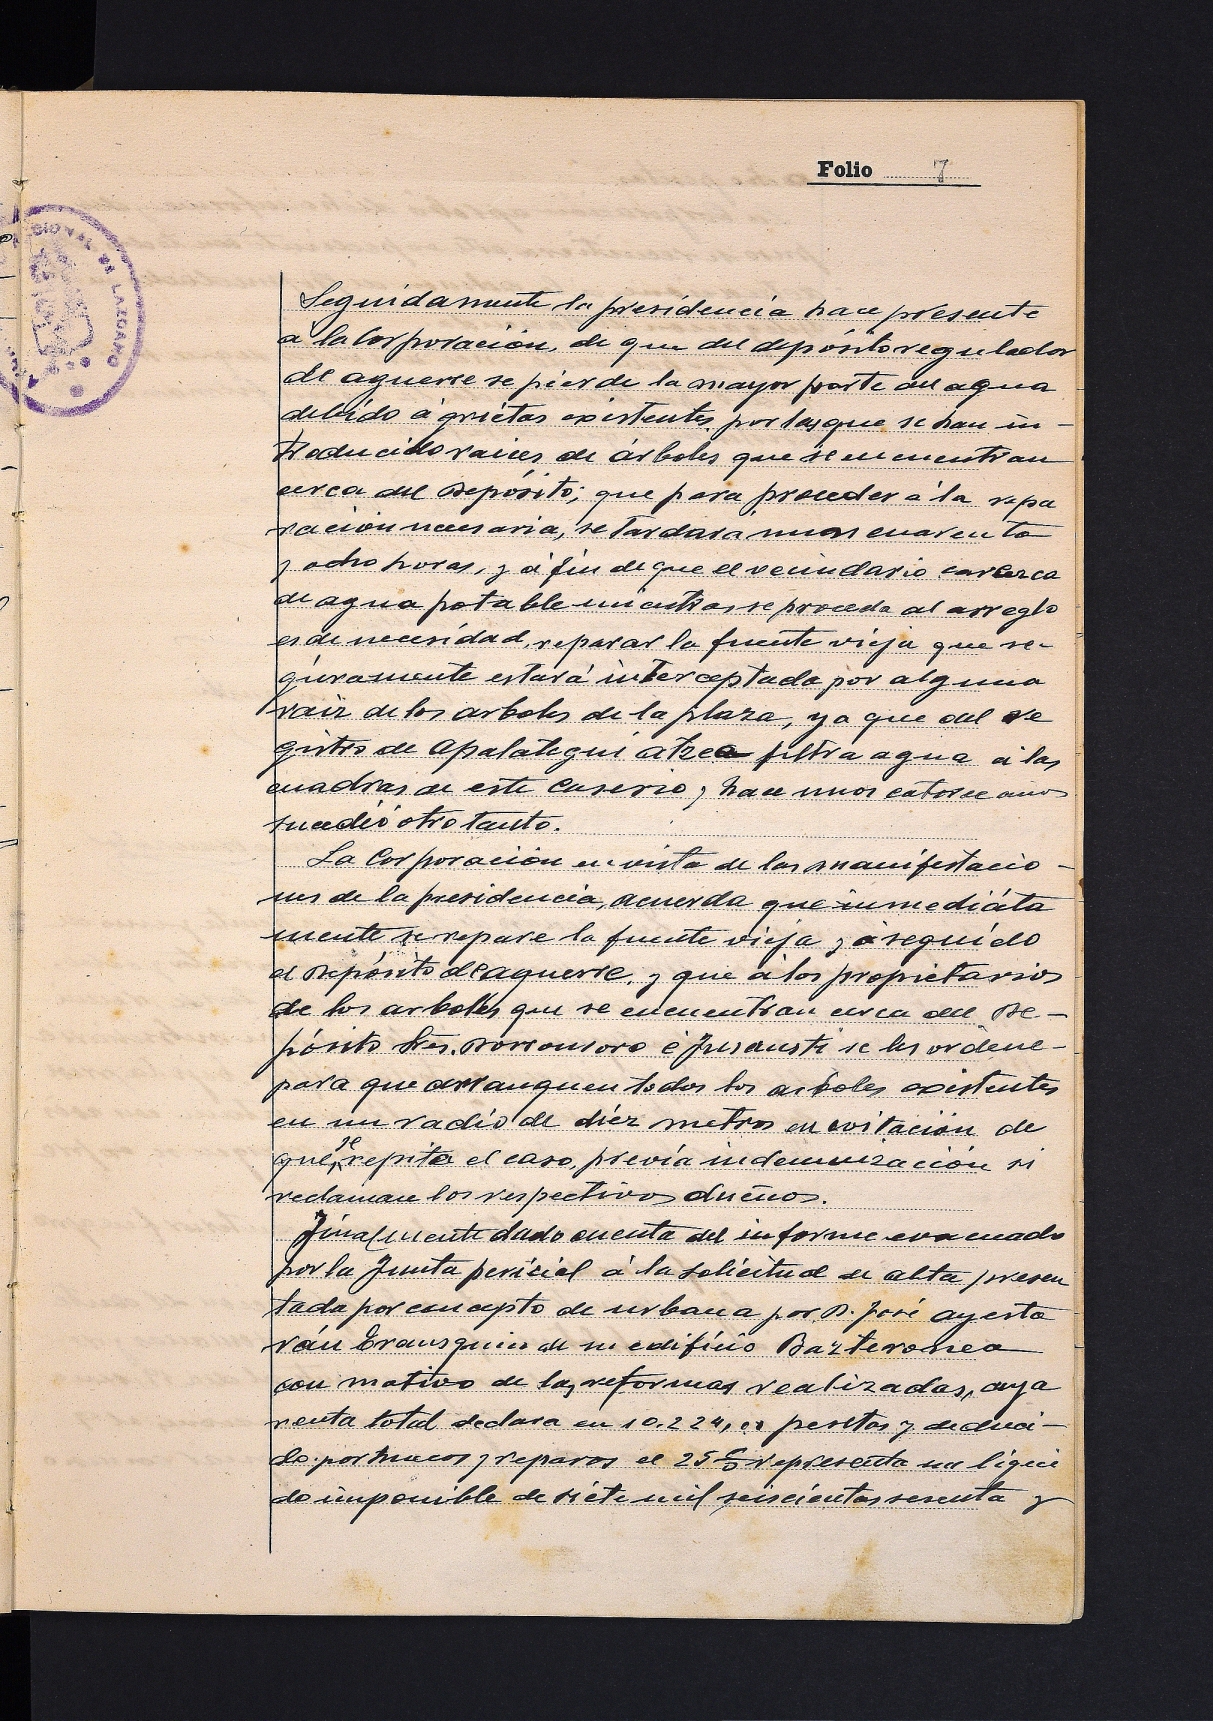 Folio 7
Seguidamente la presidencia hace presente
a la Corporación, de que del depósito regulador
de aguerre se pierde la mayor parte del agua
debido á grietas existentes, por las que se han in-
troducido raices de árboles que se encuentran
cerca del Depósito; que para proceder á la repa
ración necesaria, se tardará unas cuarenta
y ocho horas, y á fin de que el vecindario carezca
de agua potable mientras se proceda al arreglo
es de necesidad, reparar la fuente vieja que se-
guramente estará interceptada por alguna
raiz de los arboles de la plaza, ya que del re
gistro de Apalategui atzea filtra agua á las
cuadras de este Caserio, hace unos catorce años
sucedió otro tanto.
La Corporación en vista de las manifestacio-
nes de la presidencia, acuerda que inmediáta
mente se repare la fuente vieja y á seguido
el Depósito de aguerre, y que á los propietarios
de los arboles que se encuentran cerca del De-
pósito Sres. é se les ordene
para que arranquen todos los arboles existentes
en un radio de diez metros en evitación de
que se repita el caso, previa indemnización si
reclaman los respectivos dueños.
Finalmente dado cuenta del informe evacuado
por la Junta pericial á la solicitud de alta presen
tada por concepto de urbana por D. José ayesta
rán de su edificio
con motivo de las reformas realizadas, cuya
renta total declara en 10.224, pesetas y deduci-
do por huecos y reparos el 25 % representa un líqui
do imponible de siete mil seiscientas sesenta y
REGIONAL DE LAZCANO